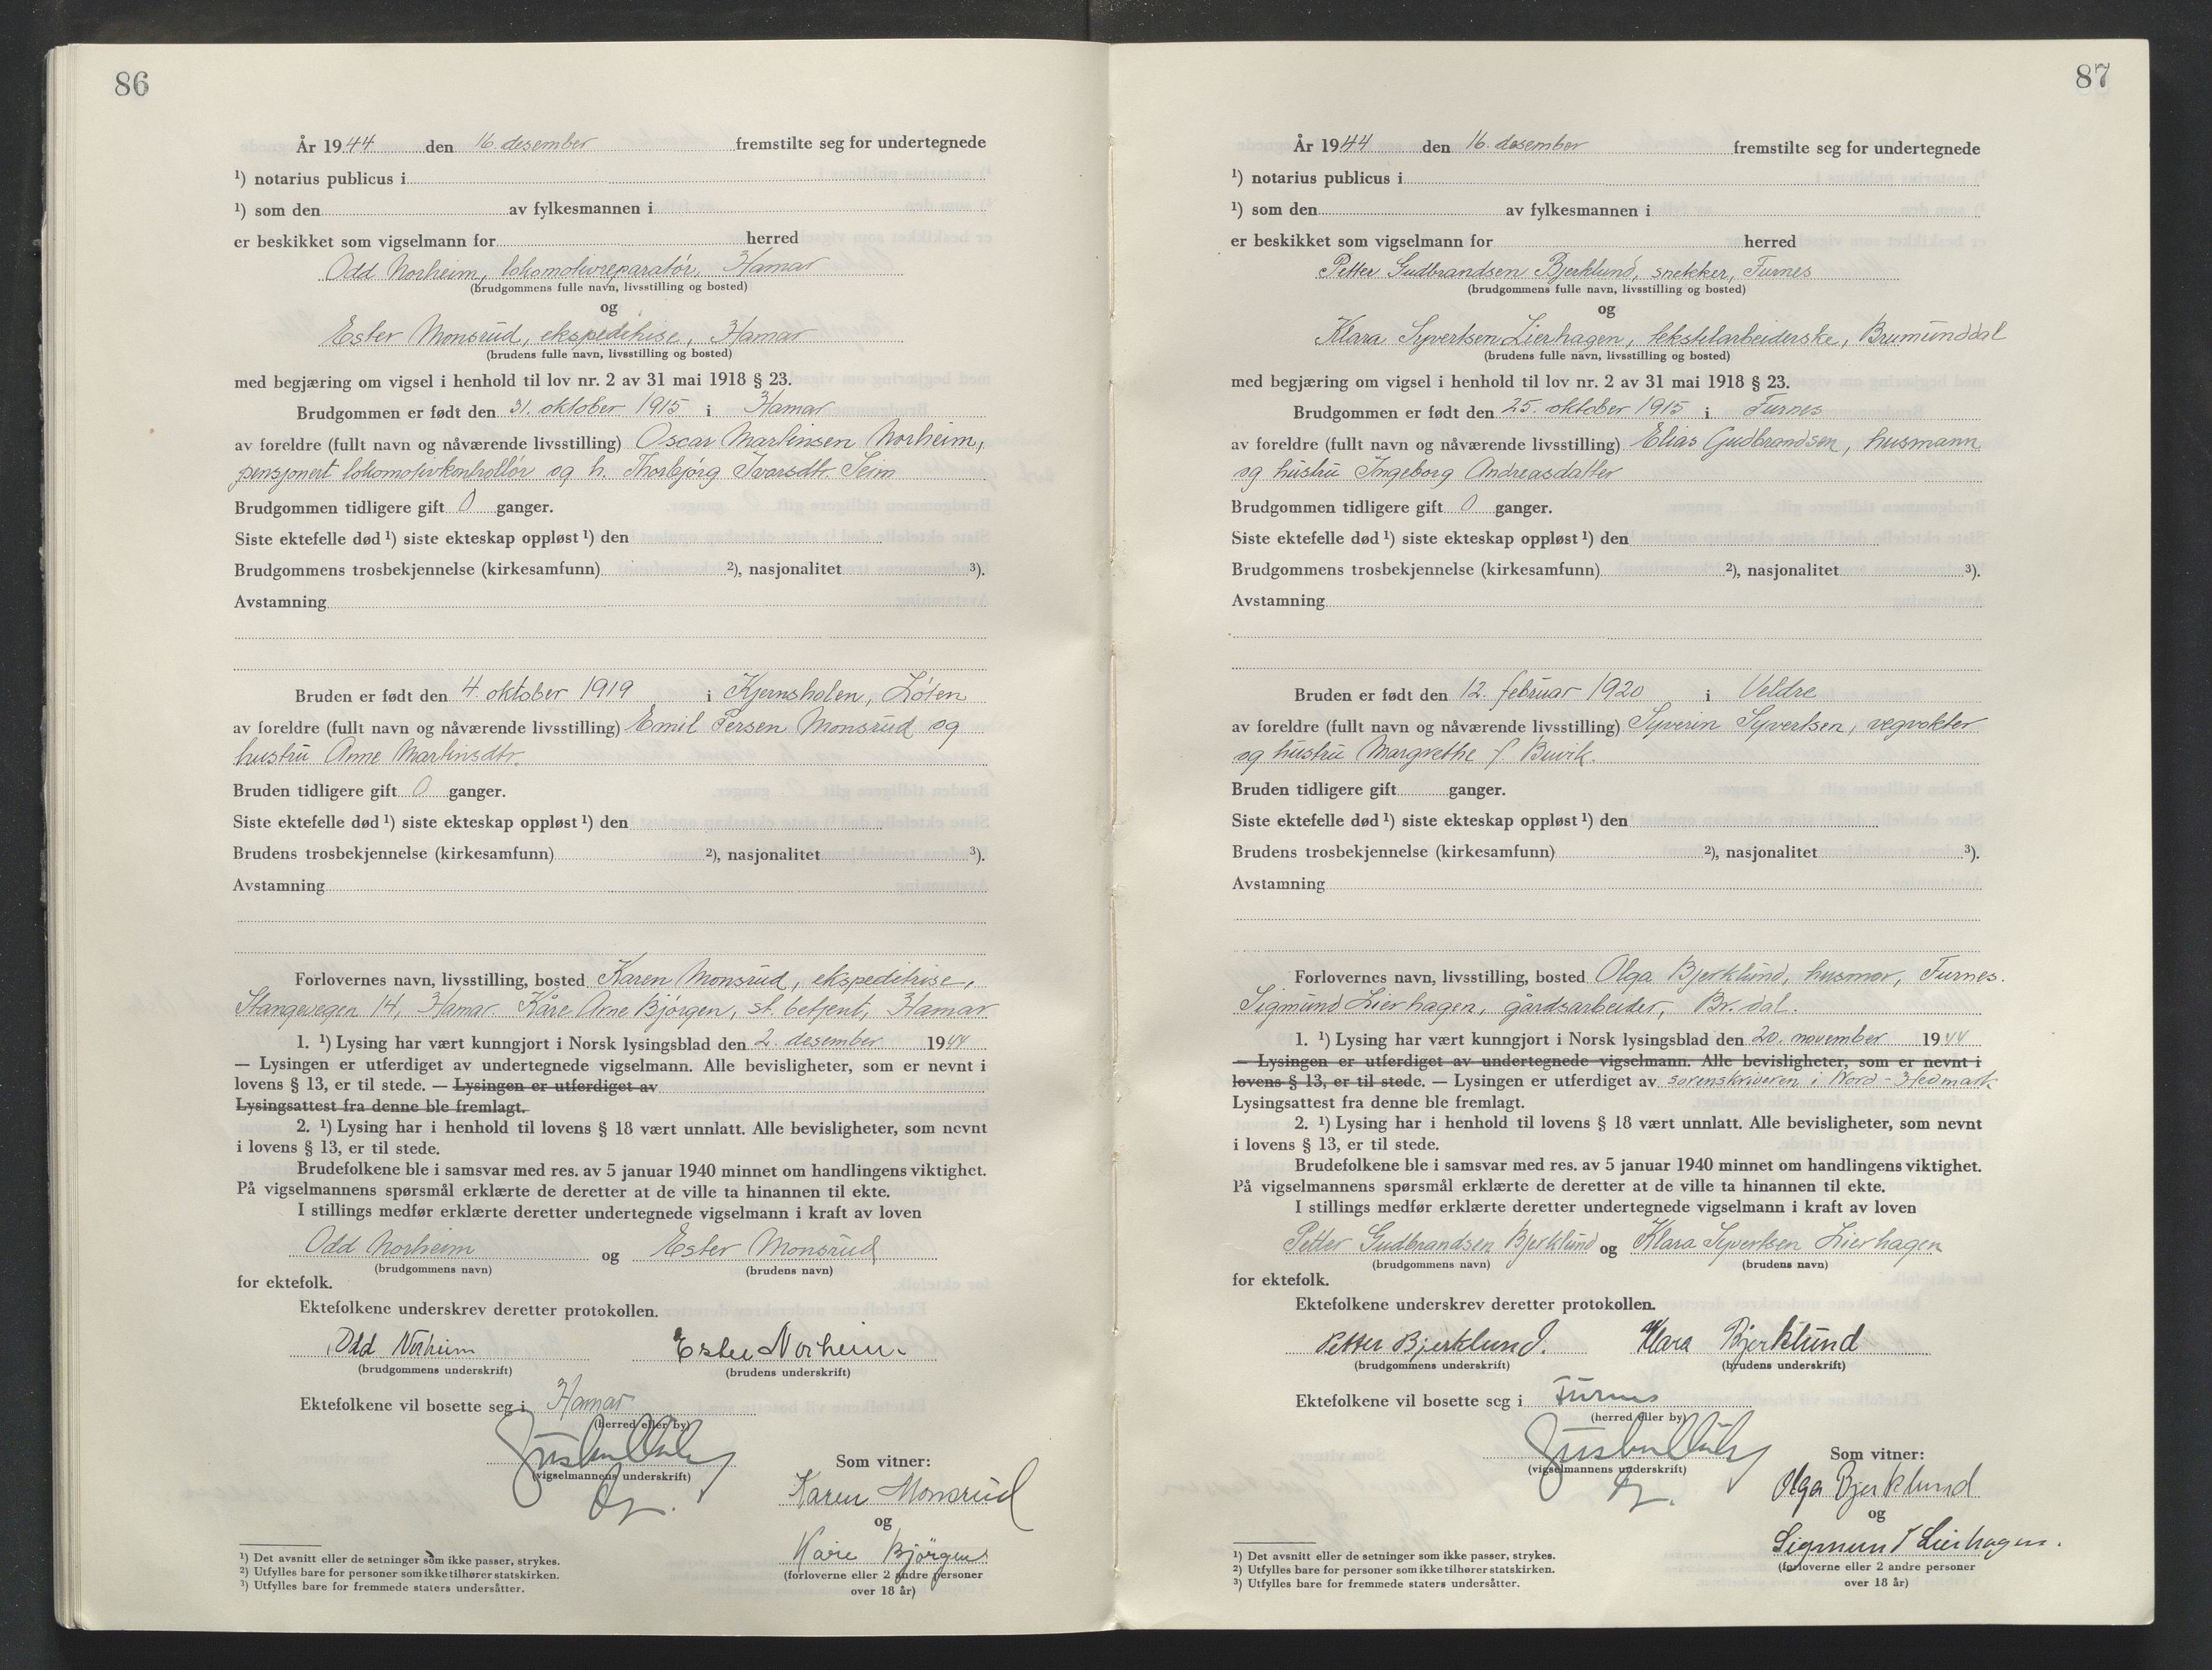 86
År 1944 den 16. desember fremstilte seg for undertegnede
¹) notarius publicus i
¹) som den av fylkesmannen i
er beskikket som vigselmann for herred
Odd Norheim, lokomotivreparatør, Hamar
(brudgommens fulle navn, livsstilling og bosted)
og
Ester Monsrud, ekspeditrise, Hamar
(brudens fulle navn, livsstilling og bosted)
med begjæring om vigsel i henhold til lov nr. 2 av 31 mai 1918 § 23.
Brudgommen er født den 31. oktober 1915 i Hamar
av foreldre (fullt navn og nåværende livsstilling) Oscar Martinsen Norheim,
pensjonert lokomotivkontrollør og h. Thorbjørg Ivarsdtr. Seim
Brudgommen tidligere gift 0 ganger.
Siste ektefelle død ¹) siste ekteskap oppløst ¹) den
Brudgommens trosbekjennelse (kirkesamfunn) ²), nasjonalitet ³).
Avstamning
Bruden er født den 4. oktober 1919 i Kjernsholen, Løten
av foreldre (fullt navn og nåværende livsstilling) Emil Persen Monsrud og
hustru Anne Martinsdtr.
Bruden tidligere gift 0 ganger.
Siste ektefelle død ¹) siste ekteskap oppløst ¹) den
Brudens trosbekjennelse (kirkesamfunn) ²), nasjonalitet ³).
Avstamning
Forlovernes navn, livsstilling, bosted Karen Monsrud, ekspeditrise,
Stangevegen 14, Hamar. Kåre Arne Bjørgen, st. betjent, Hamar
1. ¹) Lysing har vært kunngjort i Norsk lysingsblad den 2. desember 1944
— Lysingen er utferdiget av undertegnede vigselmann. Alle bevisligheter, som er nevnt i
lovens § 13, er til stede. — Lysingen er utferdiget av
Lysingsattest fra denne ble fremlagt.
2. ¹) Lysing har i henhold til lovens § 18 vært unnlatt. Alle bevisligheter, som nevnt
i lovens § 13, er til stede.
Brudefolkene ble i samsvar med res. av 5 januar 1940 minnet om handlingens viktighet.
På vigselmannens spørsmål erklærte de deretter at de ville ta hinannen til ekte.
I stillings medfør erklærte deretter undertegnede vigselmann i kraft av loven
Odd Norheim og Ester Monsrud
(brudgommens navn) (brudens navn)
for ektefolk.
Ektefolkene underskrev deretter protokollen.
Odd Norheim Ester Norheim
(brudgommens underskrift) (brudens underskrift)
Ektefolkene vil bosette seg i Hamar
(herred eller by)
(vigselmannens underskrift)
Som vitner:
Karen Monsrud
og
Kåre Bjørgen
(forloverne eller 2 andre personer
over 18 år)
¹) Det avsnitt eller de setninger som ikke passer, strykes.
²) Utfylles bare for personer som ikke tilhører statskirken.
³) Utfylles bare for fremmede staters undersåtter.
87
År 1944 den 16. desember fremstilte seg for undertegnede
¹) notarius publicus i
¹) som den av fylkesmannen i
er beskikket som vigselmann for herred
Petter Gudbrandsen Bjerklund, snekker, Furnes
(brudgommens fulle navn, livsstilling og bosted)
og
Klara Syvertsen Lierhagen, tekstilarbeiderske, Brumunddal
(brudens fulle navn, livsstilling og bosted)
med begjæring om vigsel i henhold til lov nr. 2 av 31 mai 1918 § 23.
Brudgommen er født den 25. oktober 1915 i Furnes
av foreldre (fullt navn og nåværende livsstilling) Elias Gudbrandsen, husmann
og hustru Ingeborg Andreasdatter
Brudgommen tidligere gift 0 ganger.
Siste ektefelle død ¹) siste ekteskap oppløst ¹) den
Brudgommens trosbekjennelse (kirkesamfunn) ²), nasjonalitet ³).
Avstamning
Bruden er født den 12. februar 1920 i Veldre
av foreldre (fullt navn og nåværende livsstilling) Syverin Syvertsen, vegvokter
og hustru Margrethe f. Buvik.
Bruden tidligere gift ganger.
Siste ektefelle død ¹) siste ekteskap oppløst ¹) den
Brudens trosbekjennelse (kirkesamfunn) ²), nasjonalitet ³).
Avstamning
Forlovernes navn, livsstilling, bosted Olga Bjerklund, husmor, Furnes.
Sigmund Lierhagen, gårdsarbeider, Br. dal.
1. ¹) Lysing har vært kunngjort i Norsk lysingsblad den 20. november 1944
— Lysingen er utferdiget av undertegnede vigselmann. Alle bevisligheter, som er nevnt i
lovens § 13, er til stede. — Lysingen er utferdiget av sorenskriveren i Nord-Hedmark
Lysingsattest fra denne ble fremlagt.
2. ¹) Lysing har i henhold til lovens § 18 vært unnlatt. Alle bevisligheter, som nevnt
i lovens § 13, er til stede.
Brudefolkene ble i samsvar med res. av 5 januar 1940 minnet om handlingens viktighet.
På vigselmannens spørsmål erklærte de deretter at de ville ta hinannen til ekte.
I stillings medfør erklærte deretter undertegnede vigselmann i kraft av loven
Petter Gudbrandsen Bjerklund og Klara Syvertsen Lierhagen
(brudgommens navn) (brudens navn)
for ektefolk.
Ektefolkene underskrev deretter protokollen.
Petter Bjerklund. Klara Bjerklund
(brudgommens underskrift) (brudens underskrift)
Ektefolkene vil bosette seg i Furnes
(herred eller by)
(vigselmannens underskrift)
Som vitner:
Olga Bjerklund
og
Sigmund Lierhagen.
(forloverne eller 2 andre personer
over 18 år)
¹) Det avsnitt eller de setninger som ikke passer, strykes.
²) Utfylles bare for personer som ikke tilhører statskirken.
³) Utfylles bare for fremmede staters undersåtter.